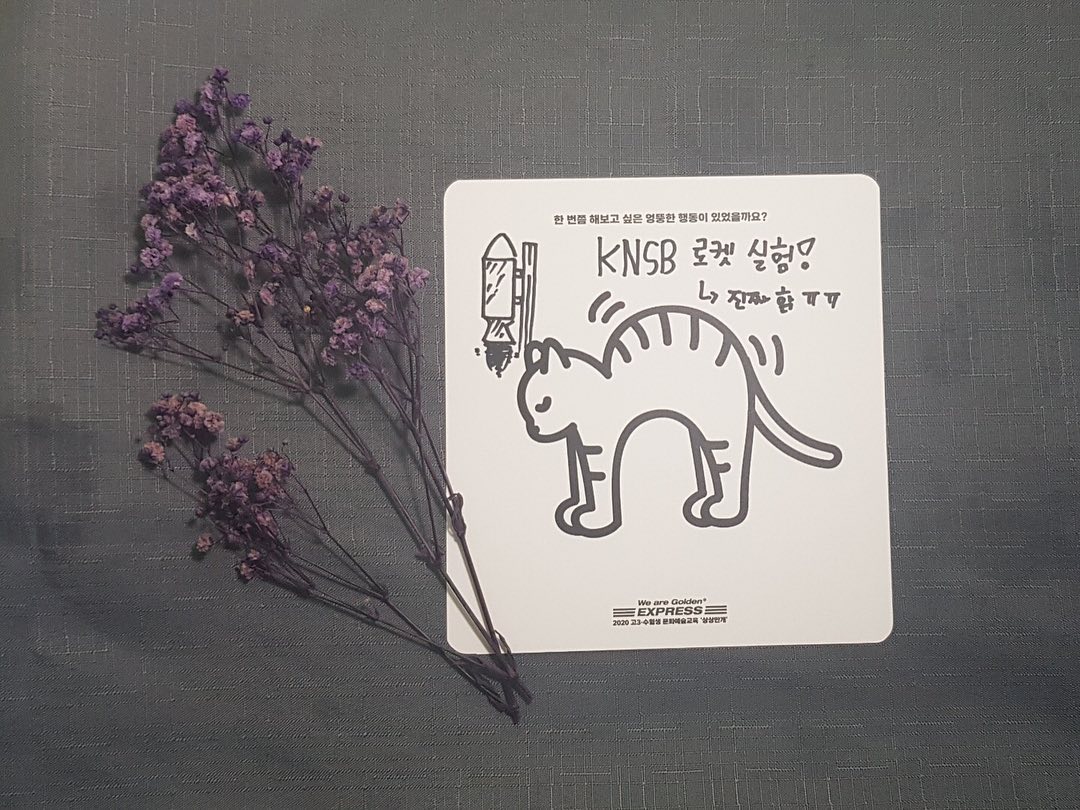 한 번쯤 해보고 싶은 엉뚱한 행동이 있었을까요?
KNSB 로켓 실험!
↳ 진짜 함 ㅠㅠ
We are Golden*
EXPRESS
2020 고3·수험생 문화예술교육 '상상만개'